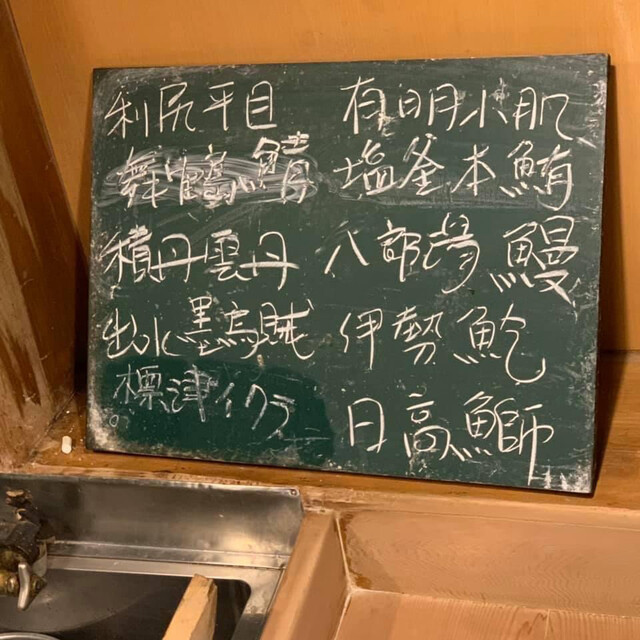 利尻平目
舞鶴鯖
積丹雲丹
出水墨烏賊
標津イクラ
有明小肌
塩釜本鮪
八郎潟鰻
伊勢鮑
日高鰤